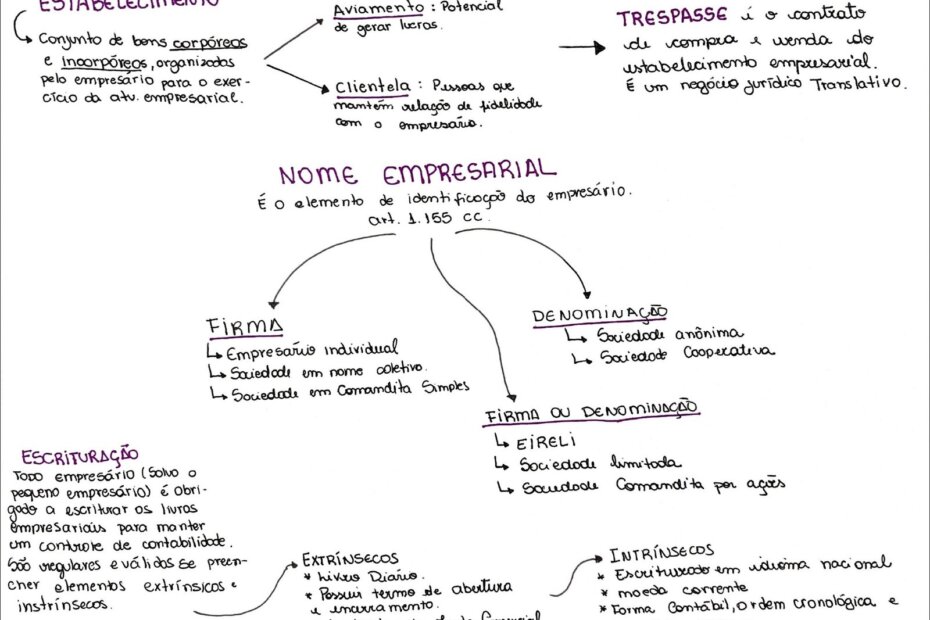 ESTABELECIMENTO
Conjunto de bens corpóreos
e incorpóreos, organizados
pelo empresário para o exer-
cício da atv. empresarial.
Aviamento : Potencial
de gerar lucros.
Clientela : Pessoas que
mantém relação de fidelidade
com o empresário.
TRESPASSE é o contrato
de compra e venda do
estabelecimento empresarial.
É um negócio jurídico Translativo.
NOME EMPRESARIAL
É o elemento de identificação do empresário.
art. 1.155 CC.
FIRMA
Empresário individual
Sociedade em nome coletivo.
Sociedade em Comandita Simples
DENOMINAÇÃO
Sociedade anônima
Sociedade Cooperativa
FIRMA OU DENOMINAÇÃO
EIRELI
Sociedade limitada
Sociedade Comandita por ações
ESCRITURAÇÃO
Todo empresário (Salvo o
pequeno empresário) é obri-
gado a escriturar os livros
empresariais para manter
um controle de contabilidade.
São regulares e válidos se preen-
cher elementos extrínsicos e
instrínsecos.
EXTRÍNSECOS
* Livro Diário.
* Possui termo de abertura
e encerramento.
INTRÍNSECOS
* Escriturado em idioma nacional
* moeda corrente
* Forma Contábil, ordem cronológica e